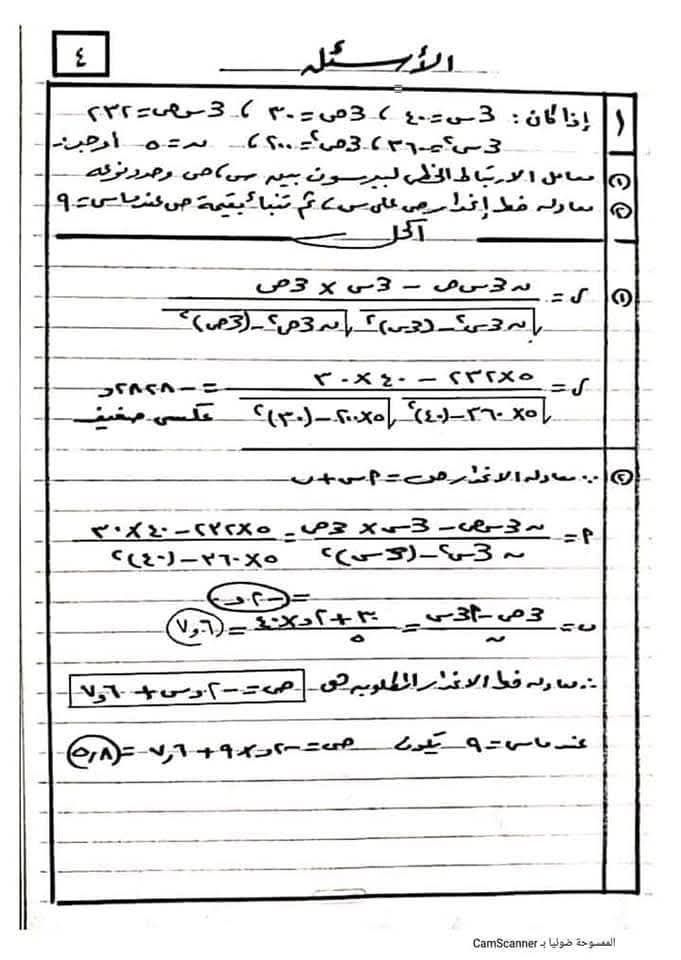 ٤
الأسئلة
١ إذا كان : 3س = ٤٠ ، 3ص = ٣٠ ، 3س ص = ٢٣٢
3س٢ = ٣٦٠ ، 3ص٢ = ٢٠٠ ، ن = ٥ أوجد :-
(١) معامل الارتباط الخطى لبيرسون بين س ، ص وحدد نوعه
(٢) معادلة خط إنحدار ص على س ، ثم تنبأ بقيمة ص عندما س = ٩
الحل
(١) ر = ن 3س ص - 3س × 3ص
√ن 3س٢ - (3س)٢ √ن 3ص٢ - (3ص)٢
ر = ٥×٢٣٢ - ٤٠ × ٣٠ = - ٢٨٢٨و
√٥× ٣٦٠ - (٤٠)٢ √٥×٢٠٠ - (٣٠)٢ عكسى ضعيف
(٢) ∵ معادلة الانحدار ص = ٢ س + ب
٢ = ن 3س ص - 3س × 3ص = ٥×٢٣٢ - ٤٠ × ٣٠
ن 3س٢ - (3س)٢ ٥×٣٦٠ - (٤٠)٢
= - ٢و
ب = 3ص - ٢3س = ٣٠ + ٢و × ٤٠ = ٦و٧
ن ٥
∴ معادلة خط الانحدار المطلوبة هى ص = - ٢و س + ٦و٧
عندما س = ٩ يكون ص = - ٢و × ٩ + ٦و٧ = ٥,٨
الممسوحة ضوئيا بـ CamScanner